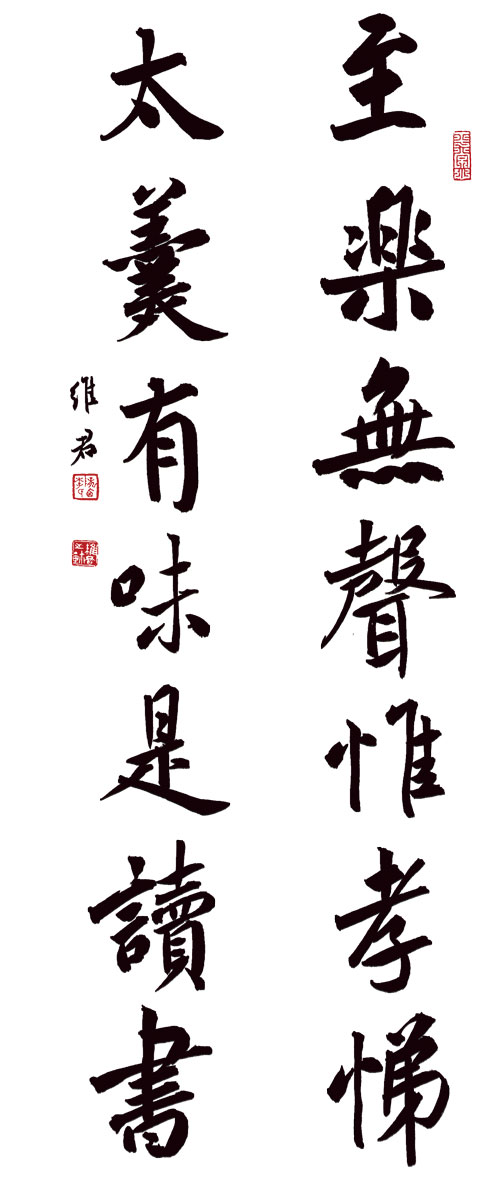 至楽無聲惟孝悌
太羹有味是讀書
維君